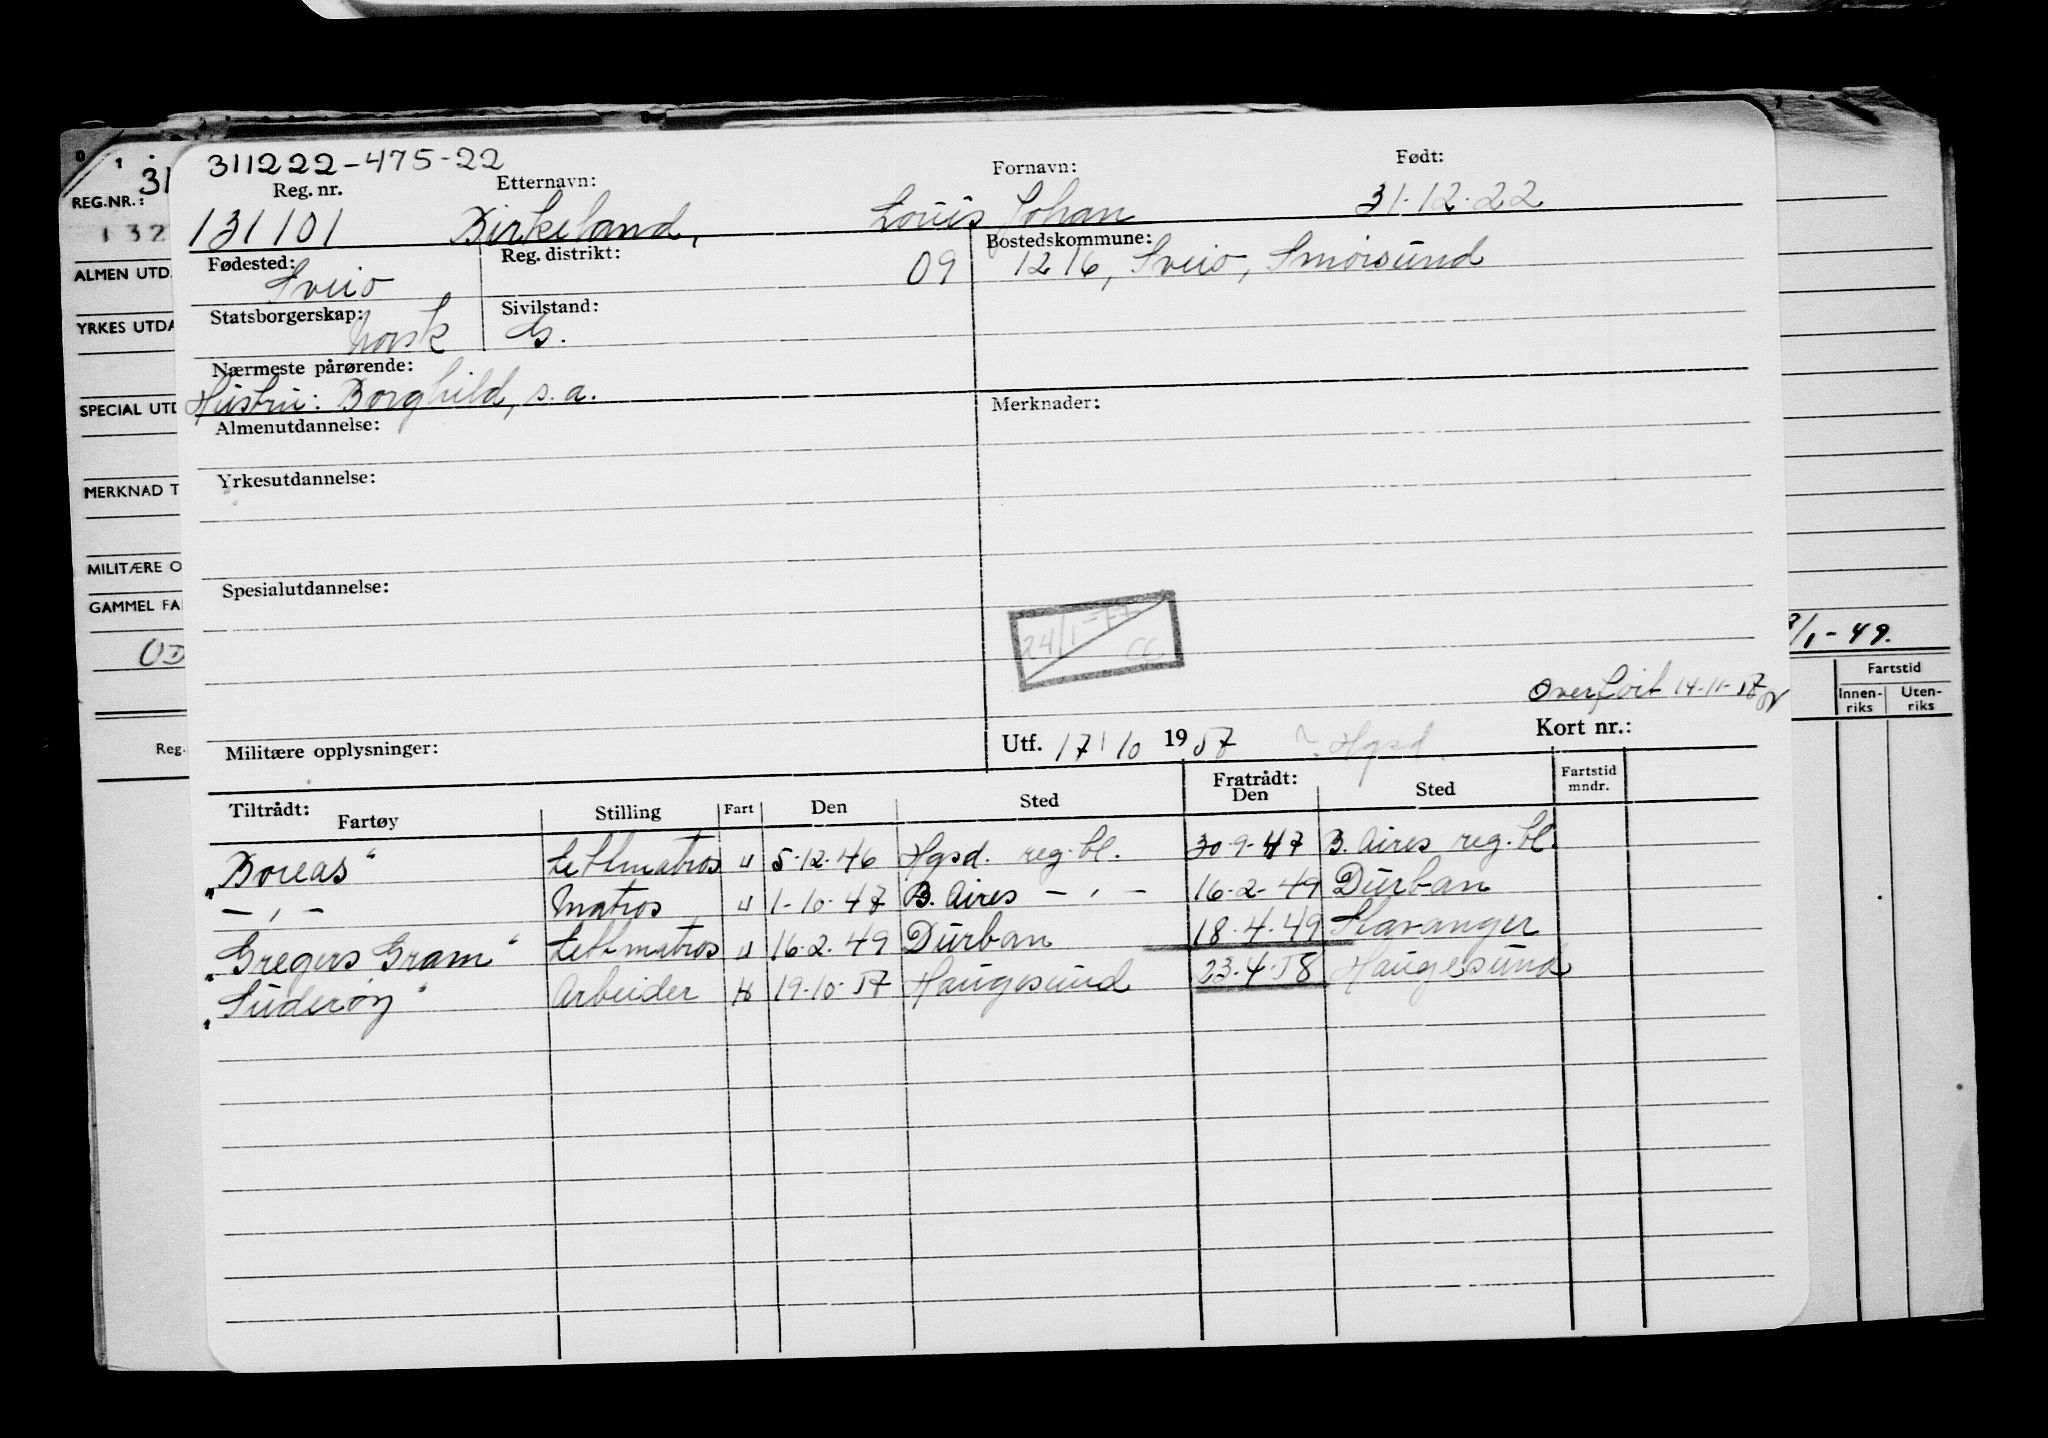 311222-475-22
Reg. nr. Etternavn: Fornavn: Født:
131101 Birkeland, Louis Johan 31.12.22
Fødested: Reg. distrikt: Bostedskommune:
Sveio 09 1216, Sveio, Smørsund
Statsborgerskap: Sivilstand:
Norsk G.
Nærmeste pårørende:
Hustru: Borghild, s.a.
Almenutdannelse: Merknader:
Yrkesutdannelse:
Spesialutdannelse:
24/1-77
Overført 14-11-57
Militære opplysninger: Utf. 17/10 1957 Hgsd Kort nr.:
Tiltrådt: Fartøy Stilling Fart Den Sted Fratrådt: Den Sted Fartstid mndr.
"Boreas" Lettmatros U 5-12-46 Hgsd. reg. bl. 30-9-47 B. Aires reg. bl.
— " — Matros U 1-10-47 B. Aires — " — 16-2-49 Durban
"Gregers Gram" Lettmatros U 16-2-49 Durban 18-4-49 Stavanger
"Suderøy" Arbeider H 19-10-57 Haugesund 23-4-58 Haugesund
REG.NR.: 31
132
ALMEN UTD.
YRKES UTDA
SPECIAL UTD
MERKNAD T
MILITÆRE O
GAMMEL FA
Reg.
/1-49.
Fartstid
Innen-riks Uten-riks